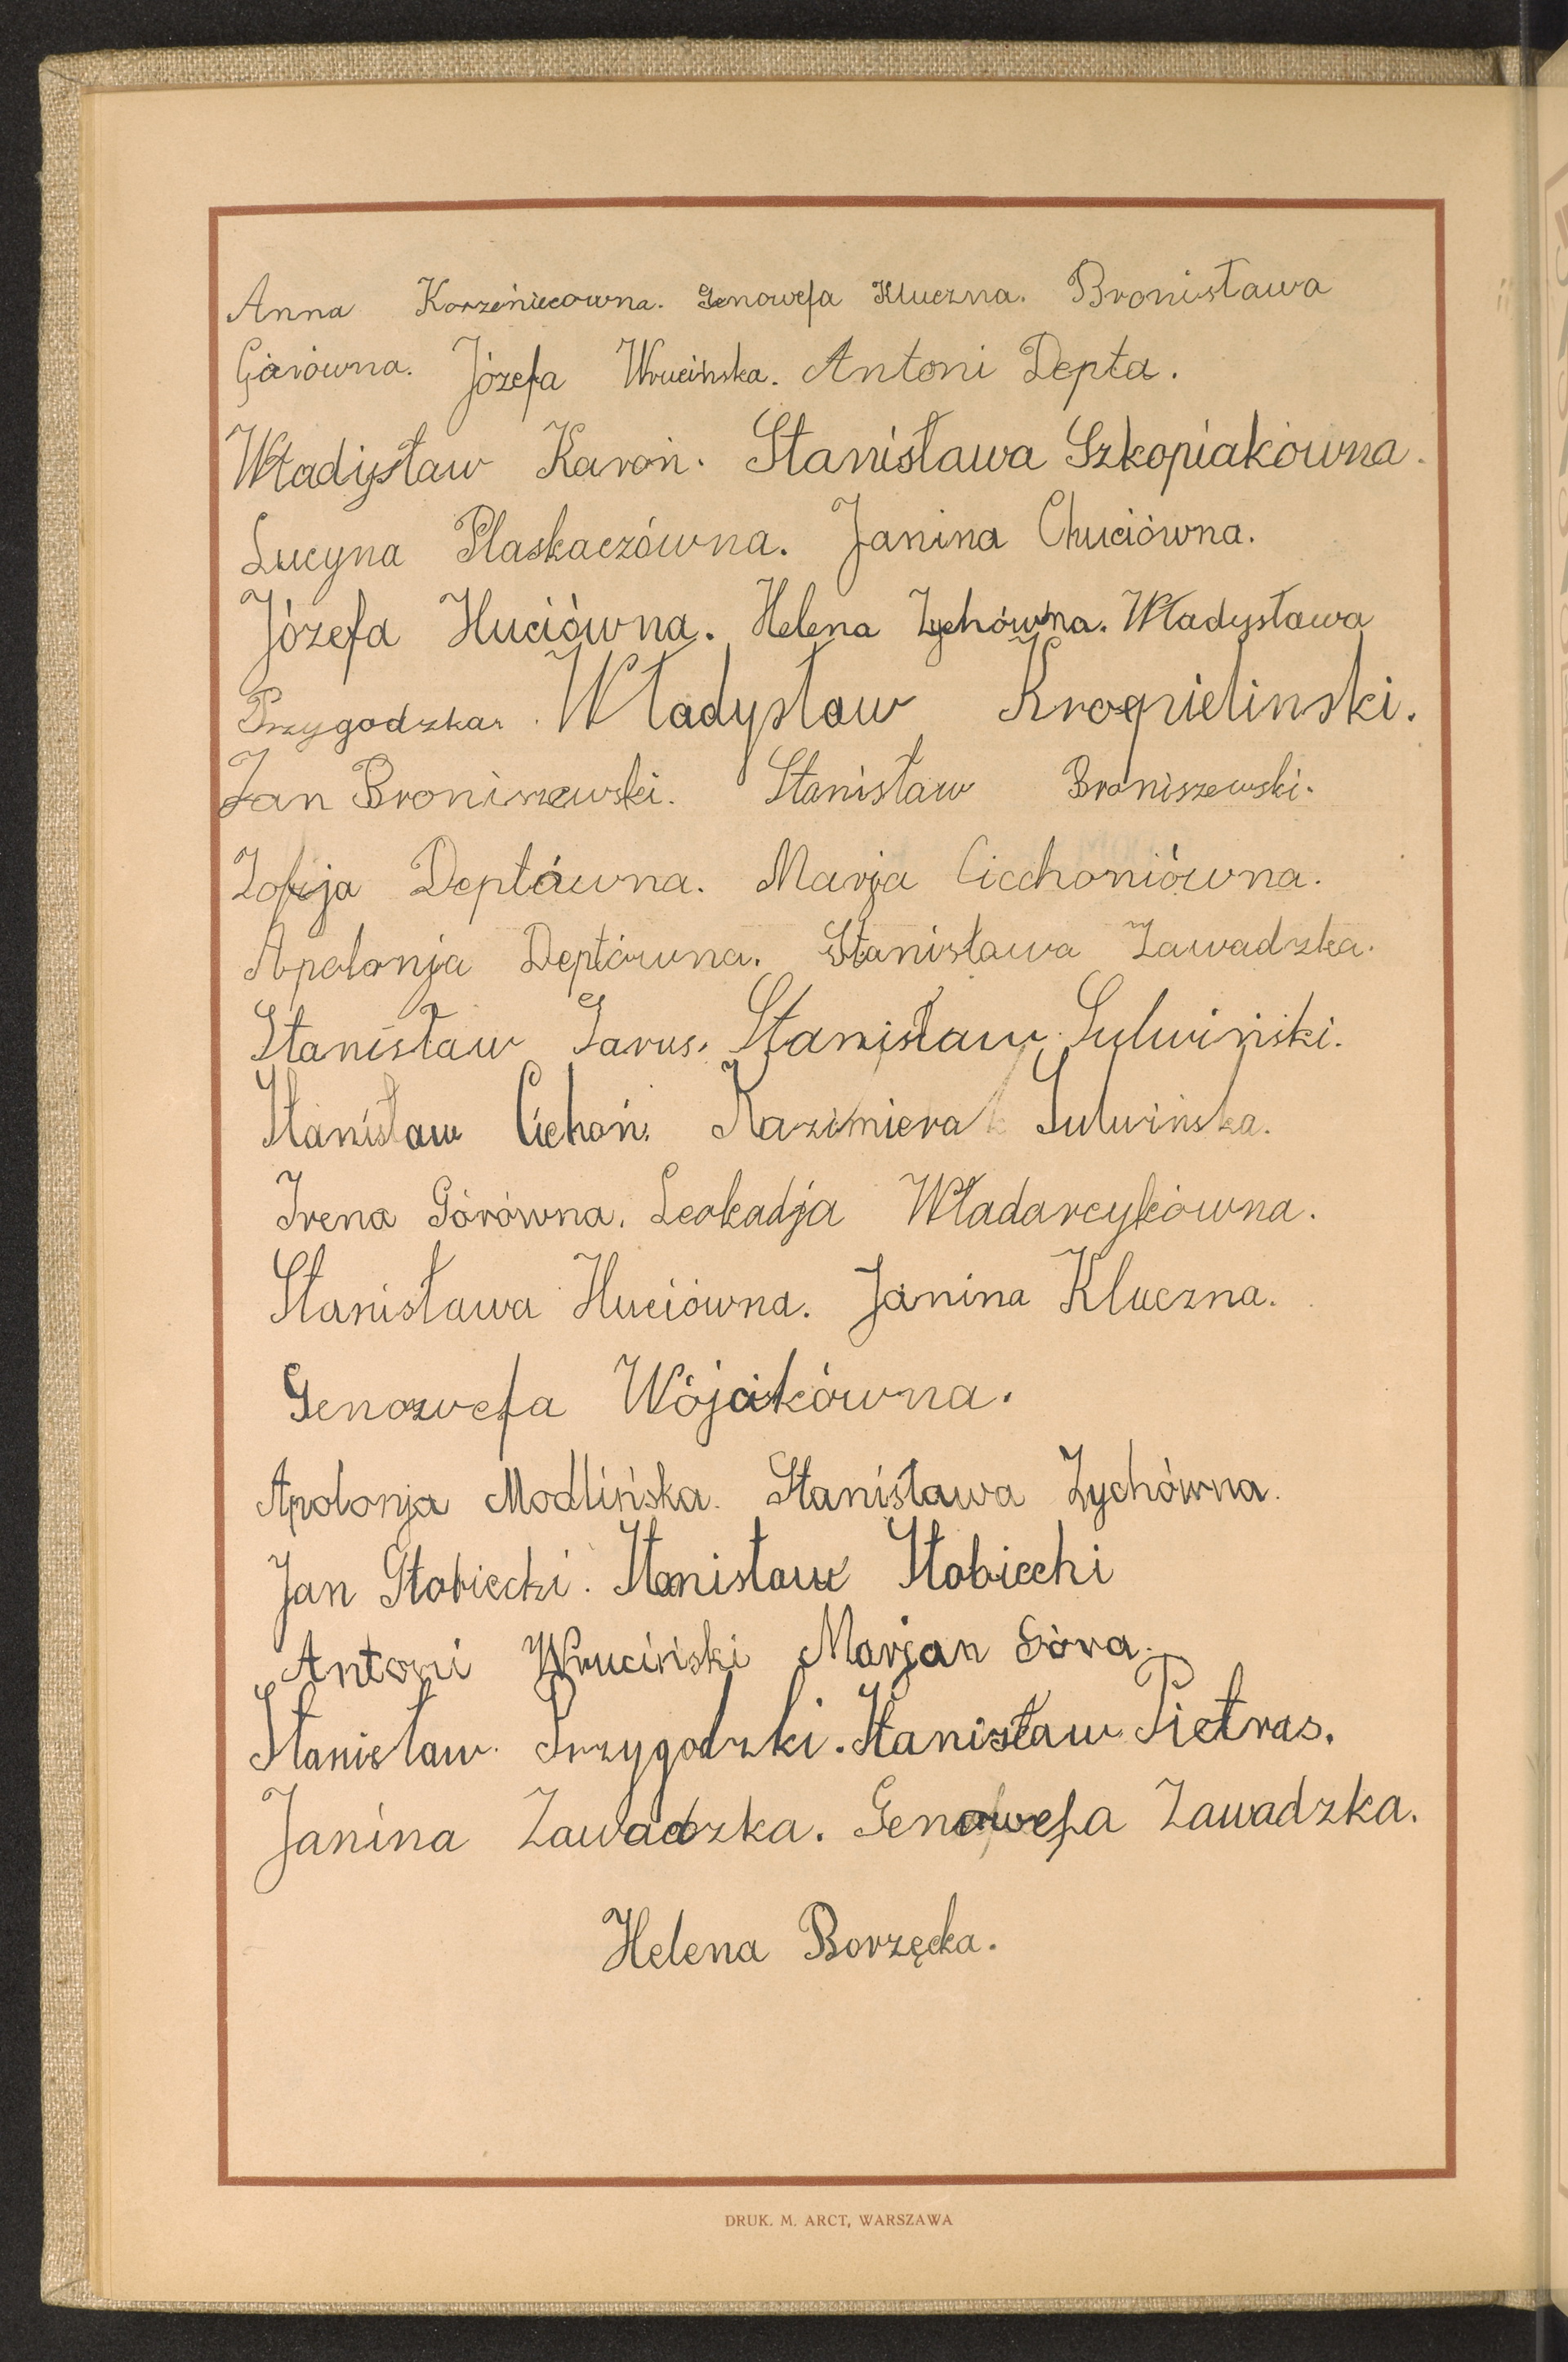 Anna Korzeniecowna. Genowefa Kluczna. Bronisława
Górówna. Józefa Wrucińska. Antoni Depta.
Władysław Karoń. Stanisława Szkopiakówna.
Lucyna Plaskaczówna. Janina Chuciówna.
Józefa Huciówna. Helena Zychówna. Władysława
Przygodzka. Władysław Krogpielinski.
Jan Broniszewski. Stanisław Broniszewski.
Zofija Deptówna. Marja Cicchoniówna.
Apolonja Deptówna. Stanisława Zawadzka.
Stanisław Garus. Stanisław Sulwiński.
Stanisław Cichoń. Kazimiera Sulwińska.
Irena Górówna. Leokadja Władarcykówna.
Stanisława Huciówna. Janina Kluczna.
Genowefa Wójcikówna.
Apolonja Modlińska. Stanisława Zychówna.
Jan Stobiecki. Stanisław Stobiecki
Antoni Wruciński Marjan Góra.
Stanisław Przygodzki. Stanisław Pietras.
Janina Zawadzka. Genowefa Zawadzka.
Helena Borzęcka.
DRUK. M. ARCT, WARSZAWA